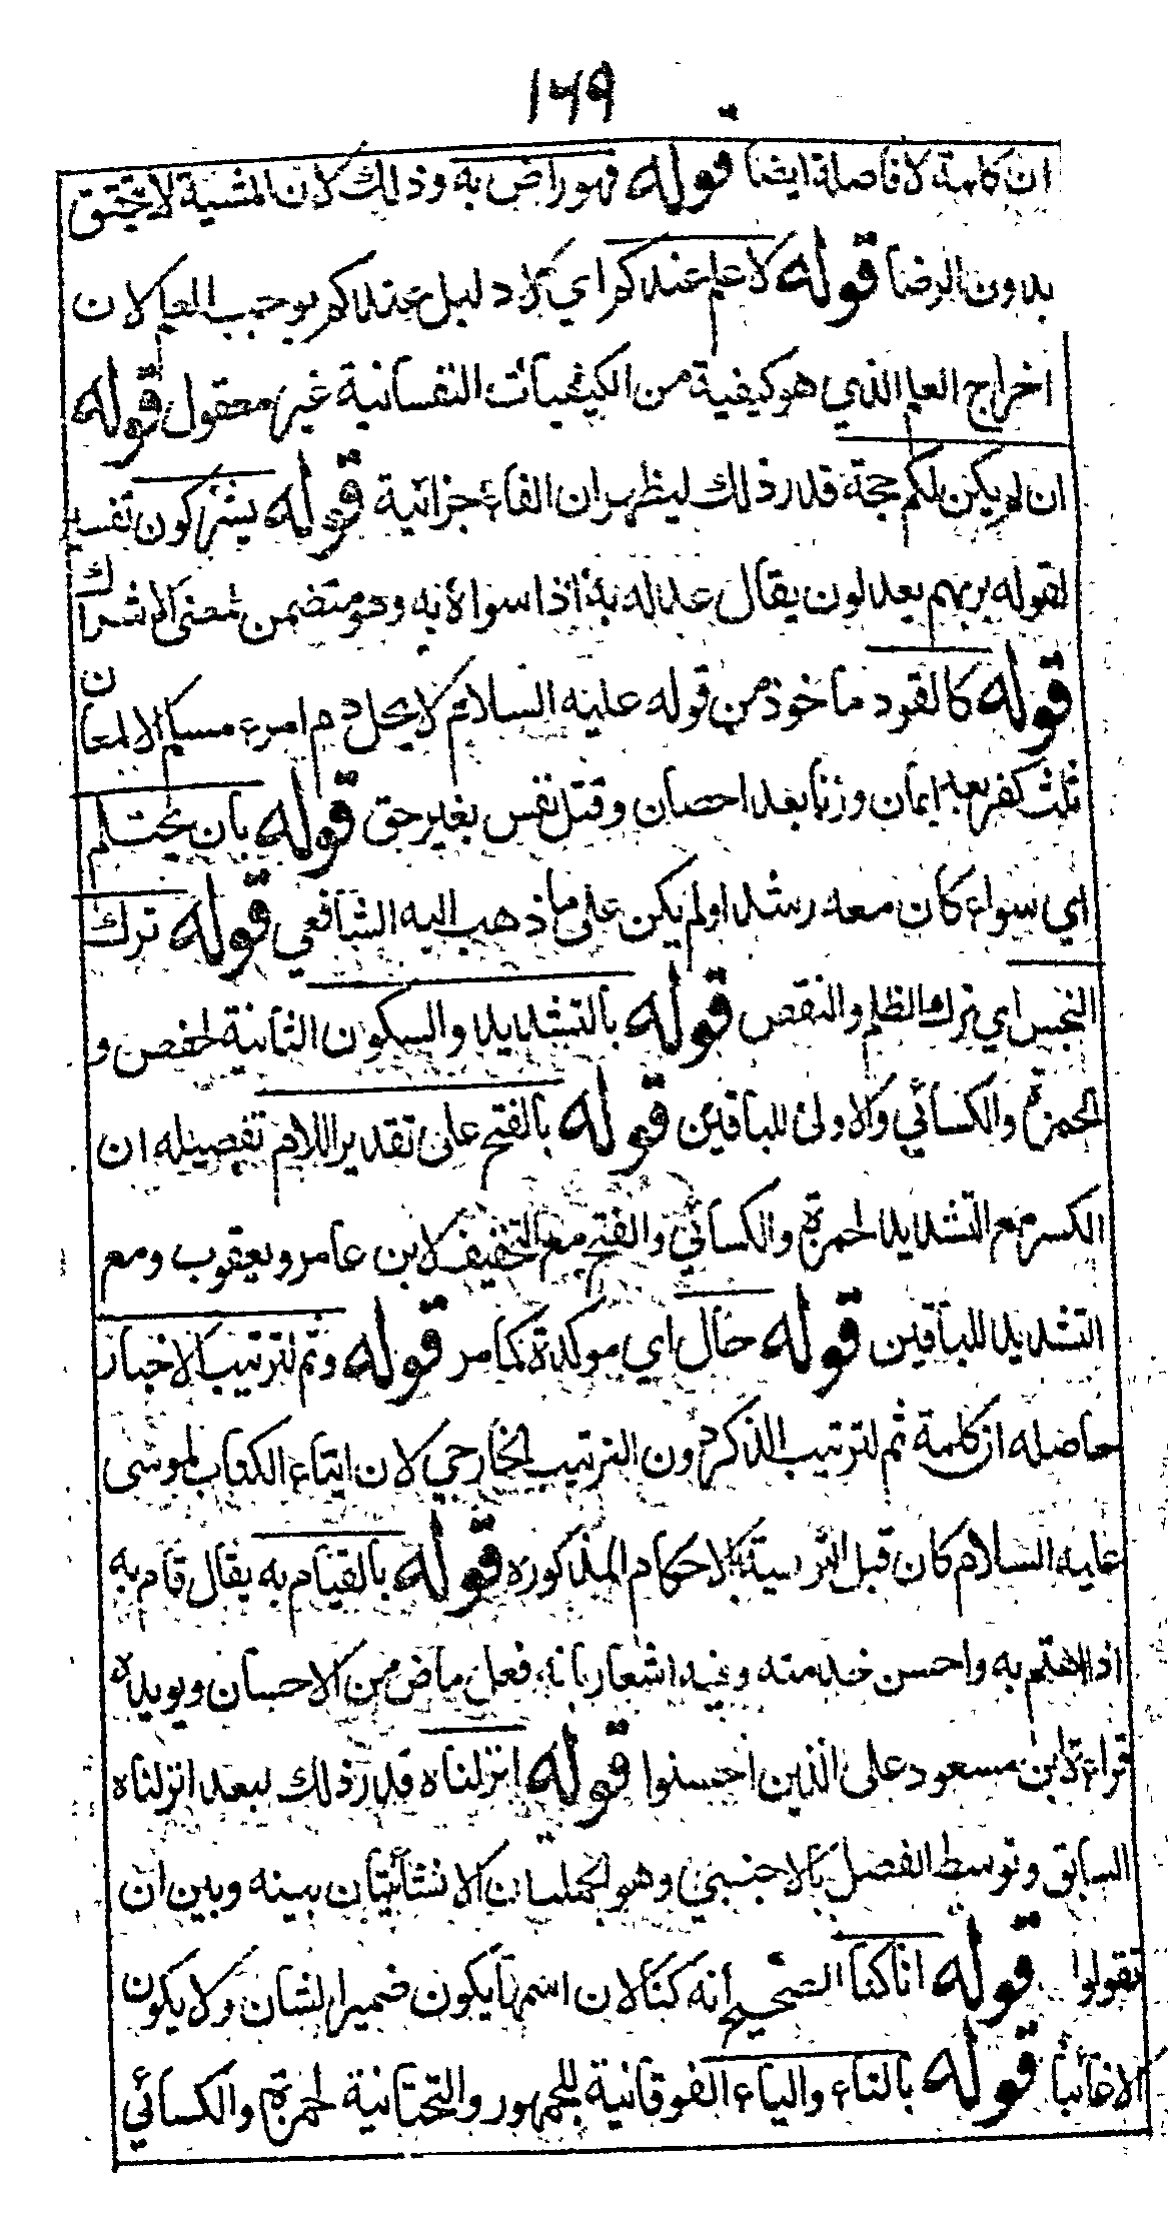 ١٦٩
ان كلمة لا فاصلة ايضا قوله فهو راض به وذلك لان المشية لا تتحقق
بدون الرضا قوله لا علم عندكم اي لا دليل عندكم يوجب العلم لان
اخراج العلم الذي هو كيفية من الكيفيات النفسانية غير معقول قوله
ان لم يكن لكم حجة قدر ذلك ليظهر ان الفاء جزائية قوله يشركون تفسير
لقوله بربهم يعدلون يقال عدله به اذا سواه به وهو متضمن لمعنى الاشراك
قوله كالقود ماخوذ من قوله عليه السلام لا يحل دم امرء مسلم الا لمعان
ثلث كفر بعد ايمان وزنا بعد احصان وقتل نفس بغير حق قوله بان يحتلم
اي سواء كان معه رشد او لم يكن على ما ذهب اليه الشافعي قوله ترك
النجس اي ترك الظلم والنقص قوله بالتشديد والسكون الثانية لحفص و
الحمزة والكسائي والاولى للباقين قوله بالفتح على تقدير اللام تفصيله ان
الكسر مع التشديد لحمزة والكسائي والفتح مع التخفيف لابن عامر ويعقوب ومع
التشديد للباقين قوله حال اي موكدة كما مر قوله وثم لترتيب الاخبار
حاصله ان كلمة ثم لترتيب الذكر دون الترتيب الخارجي لان ايتاء الكتاب لموسى
عليه السلام كان قبل الاحكام المذكورة قوله بالقيام به يقال قام به
اذا اهتم به واحسن خدمته وفيه اشعار بانه فعل ماض من الاحسان ويويده
قراءة ابن مسعود على الذين احسنوا قوله انزلناه قدر ذلك لبعد انزلناه
السابق وتوسط الفصل بالاجنبي وهو الجملتان الانشائيتان بينه وبين ان
تقولوا قوله انا كنا الصحيح انه كنا لان اسمها يكون ضمير الشان ولا يكون
الا غائبا قوله بالتاء والياء الفوقانية للجمهور والتحتانية لحمزة والكسائي